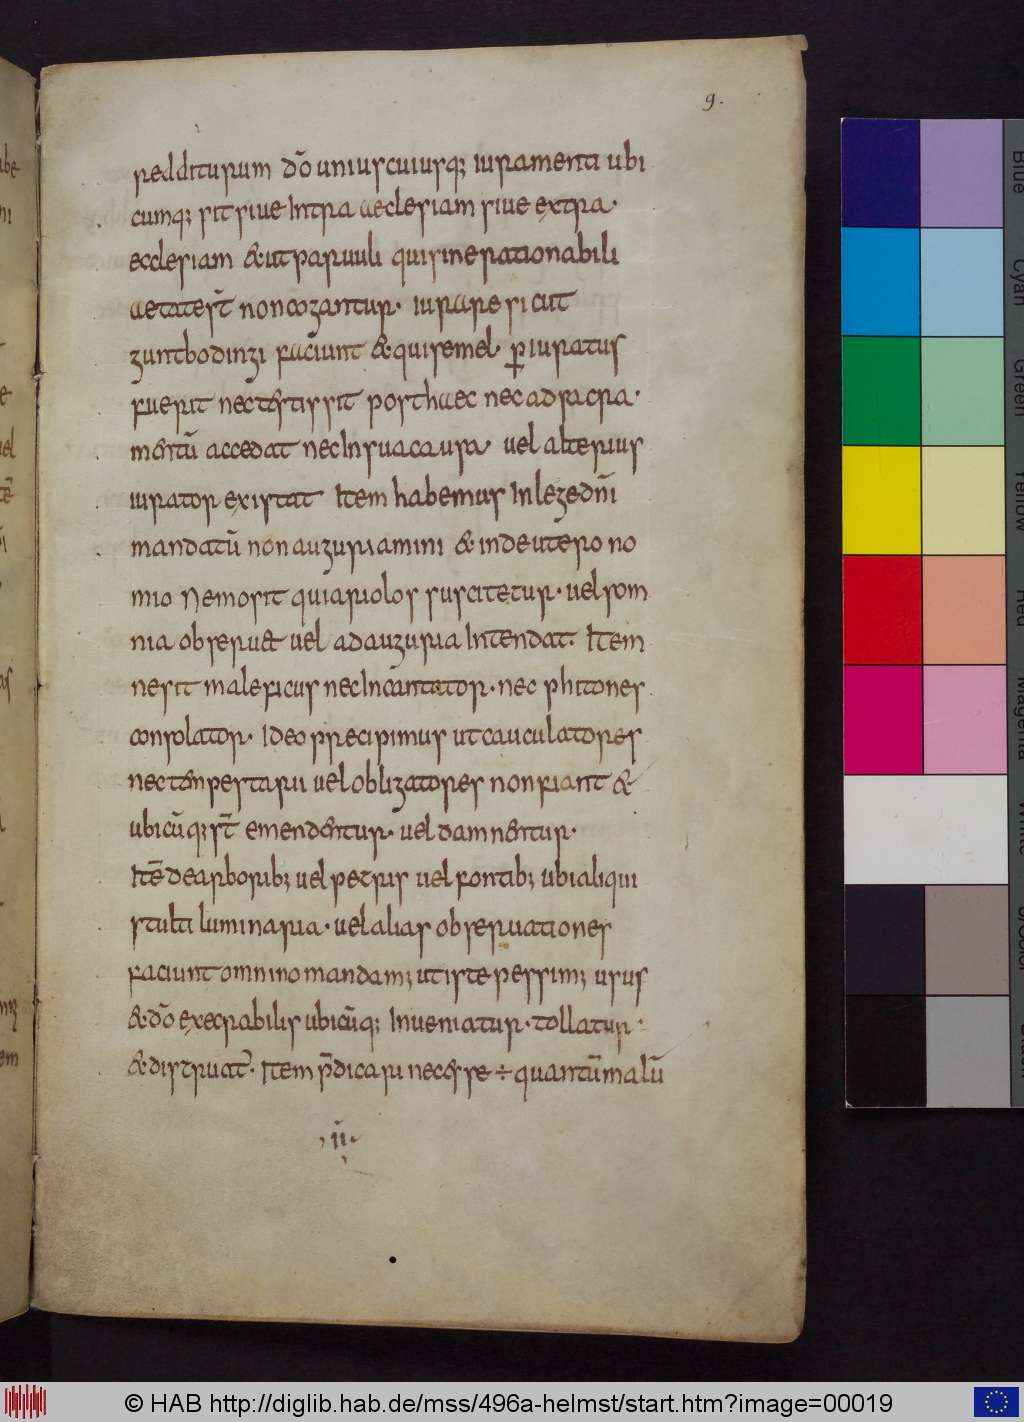 9.
redditurum dō uniuscuiusq; iuramenti ubi
cumq; sit siue Intra aeclesiam siue extra·
ecclesiam & ut paruuli qui sine rationabili
aetate st̄ non cogantur· iurare sicut
guntbodingi faciunt & qui semel· ꝑiuratus
fuerit nec testis sit post haec nec ad sacra·
mentū accedat nec In sua causa· uel alterius
iurator existat Item habemus In lege dn̄i
mandatū non auguriamini & in deutero no
mio Nemo sit qui ariolos suscitetur· uel som
nia obseru& uel ad auguria Intendat· Item
ne sit maleficus nec Incantator· nec phitones
consolator· Ideo precipimus ut cauculatores
nec tempestarii uel obligatores non fiant &
ubicūq; st̄ emendentur· uel damnentur·
Itē de arborib; uel petris uel fontib; ubi aliqui
stulti luminaria· uel alias obseruationes
faciunt omnino mandam; ut iste pessim; usus
& dō execrabilis ubicūq; Inueniatur· tollatur·
& distruat᷑· Item p̄dicari necesse ÷ quantū malū
·īī·
© HAB http://diglib.hab.de/mss/496a-helmst/start.htm?image=00019
Blue
Cyan
Green
Yellow
Red
Magenta
White
3/Color